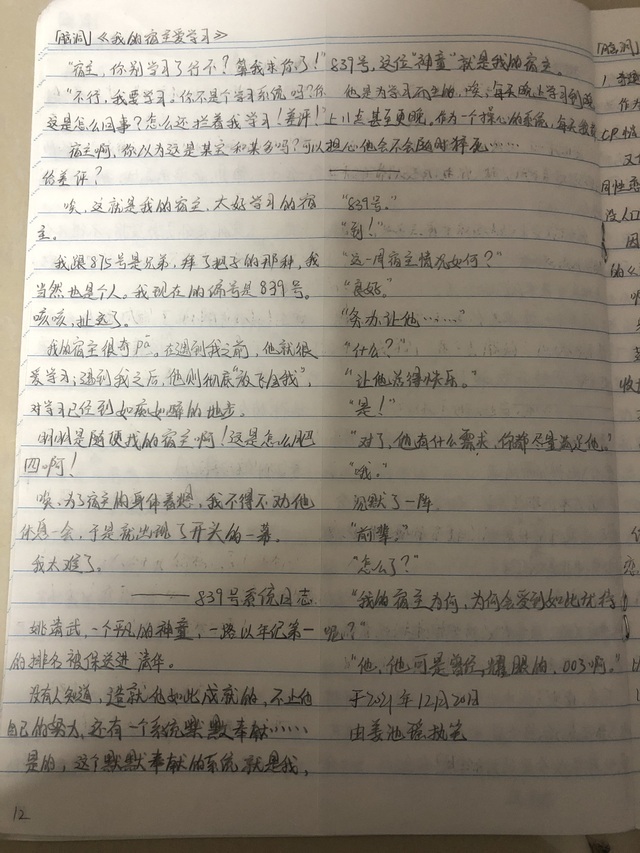 「脑洞」《我的宿主爱学习》
"宿主，你别学习了行不？算我求你了！"
"不行，我要学习。你不是个学习系统吗？你
这是怎么回事？怎么还拦着我学习！差评！"
宿主啊，你以为这是某宝和某多吗？可以
给差评？
唉，这就是我的宿主，大好学习的宿
主。
我跟875号是兄弟，拜了把子的那种，我
当然也是个人。我现在的编号是839号。
咳咳，扯远了。
我的宿主很奇pā，在遇到我之前，他就很
爱学习；遇到我之后，他则彻底"放飞自我"，
对学习已经到如痴如醉的地步。
明明是随便找的宿主啊！这是怎么肥
四啊！
唉，为了宿主的身体着想，我不得不劝他
休息一会，于是就出现了开头的一幕。
我太难了。
——839号系统日志
姚靖武，一个平凡的神童，一路以年纪第一
的排名被保送进清华。
没有人知道，造就他如此成就的，不止他
自己的努力，还有一个系统默默奉献……
是的，这个默默奉献的系统就是我，
839号，这位"神童"就是我的宿主。
他是为学习而生的，唉，每天晚上学习到
上11点甚至更晚。作为一个操心的系统，每天都
担心他会不会随时猝死……
"839号。"
"到！"
"这一周宿主情况如何？"
"良好。"
"务必让他……"
"什么？"
"让他活得快乐。"
"是！"
"对了，他有什么需求，你都尽量满足他。"
"哦。"
沉默了一阵
"前辈。"
"怎么了？"
"我的宿主为何，为何会受到如此优待
呢？"
"他，他可是曾经，耀眼的，003啊。"
于2021年12月20日
由姜池瑶执笔
12
「脑洞」